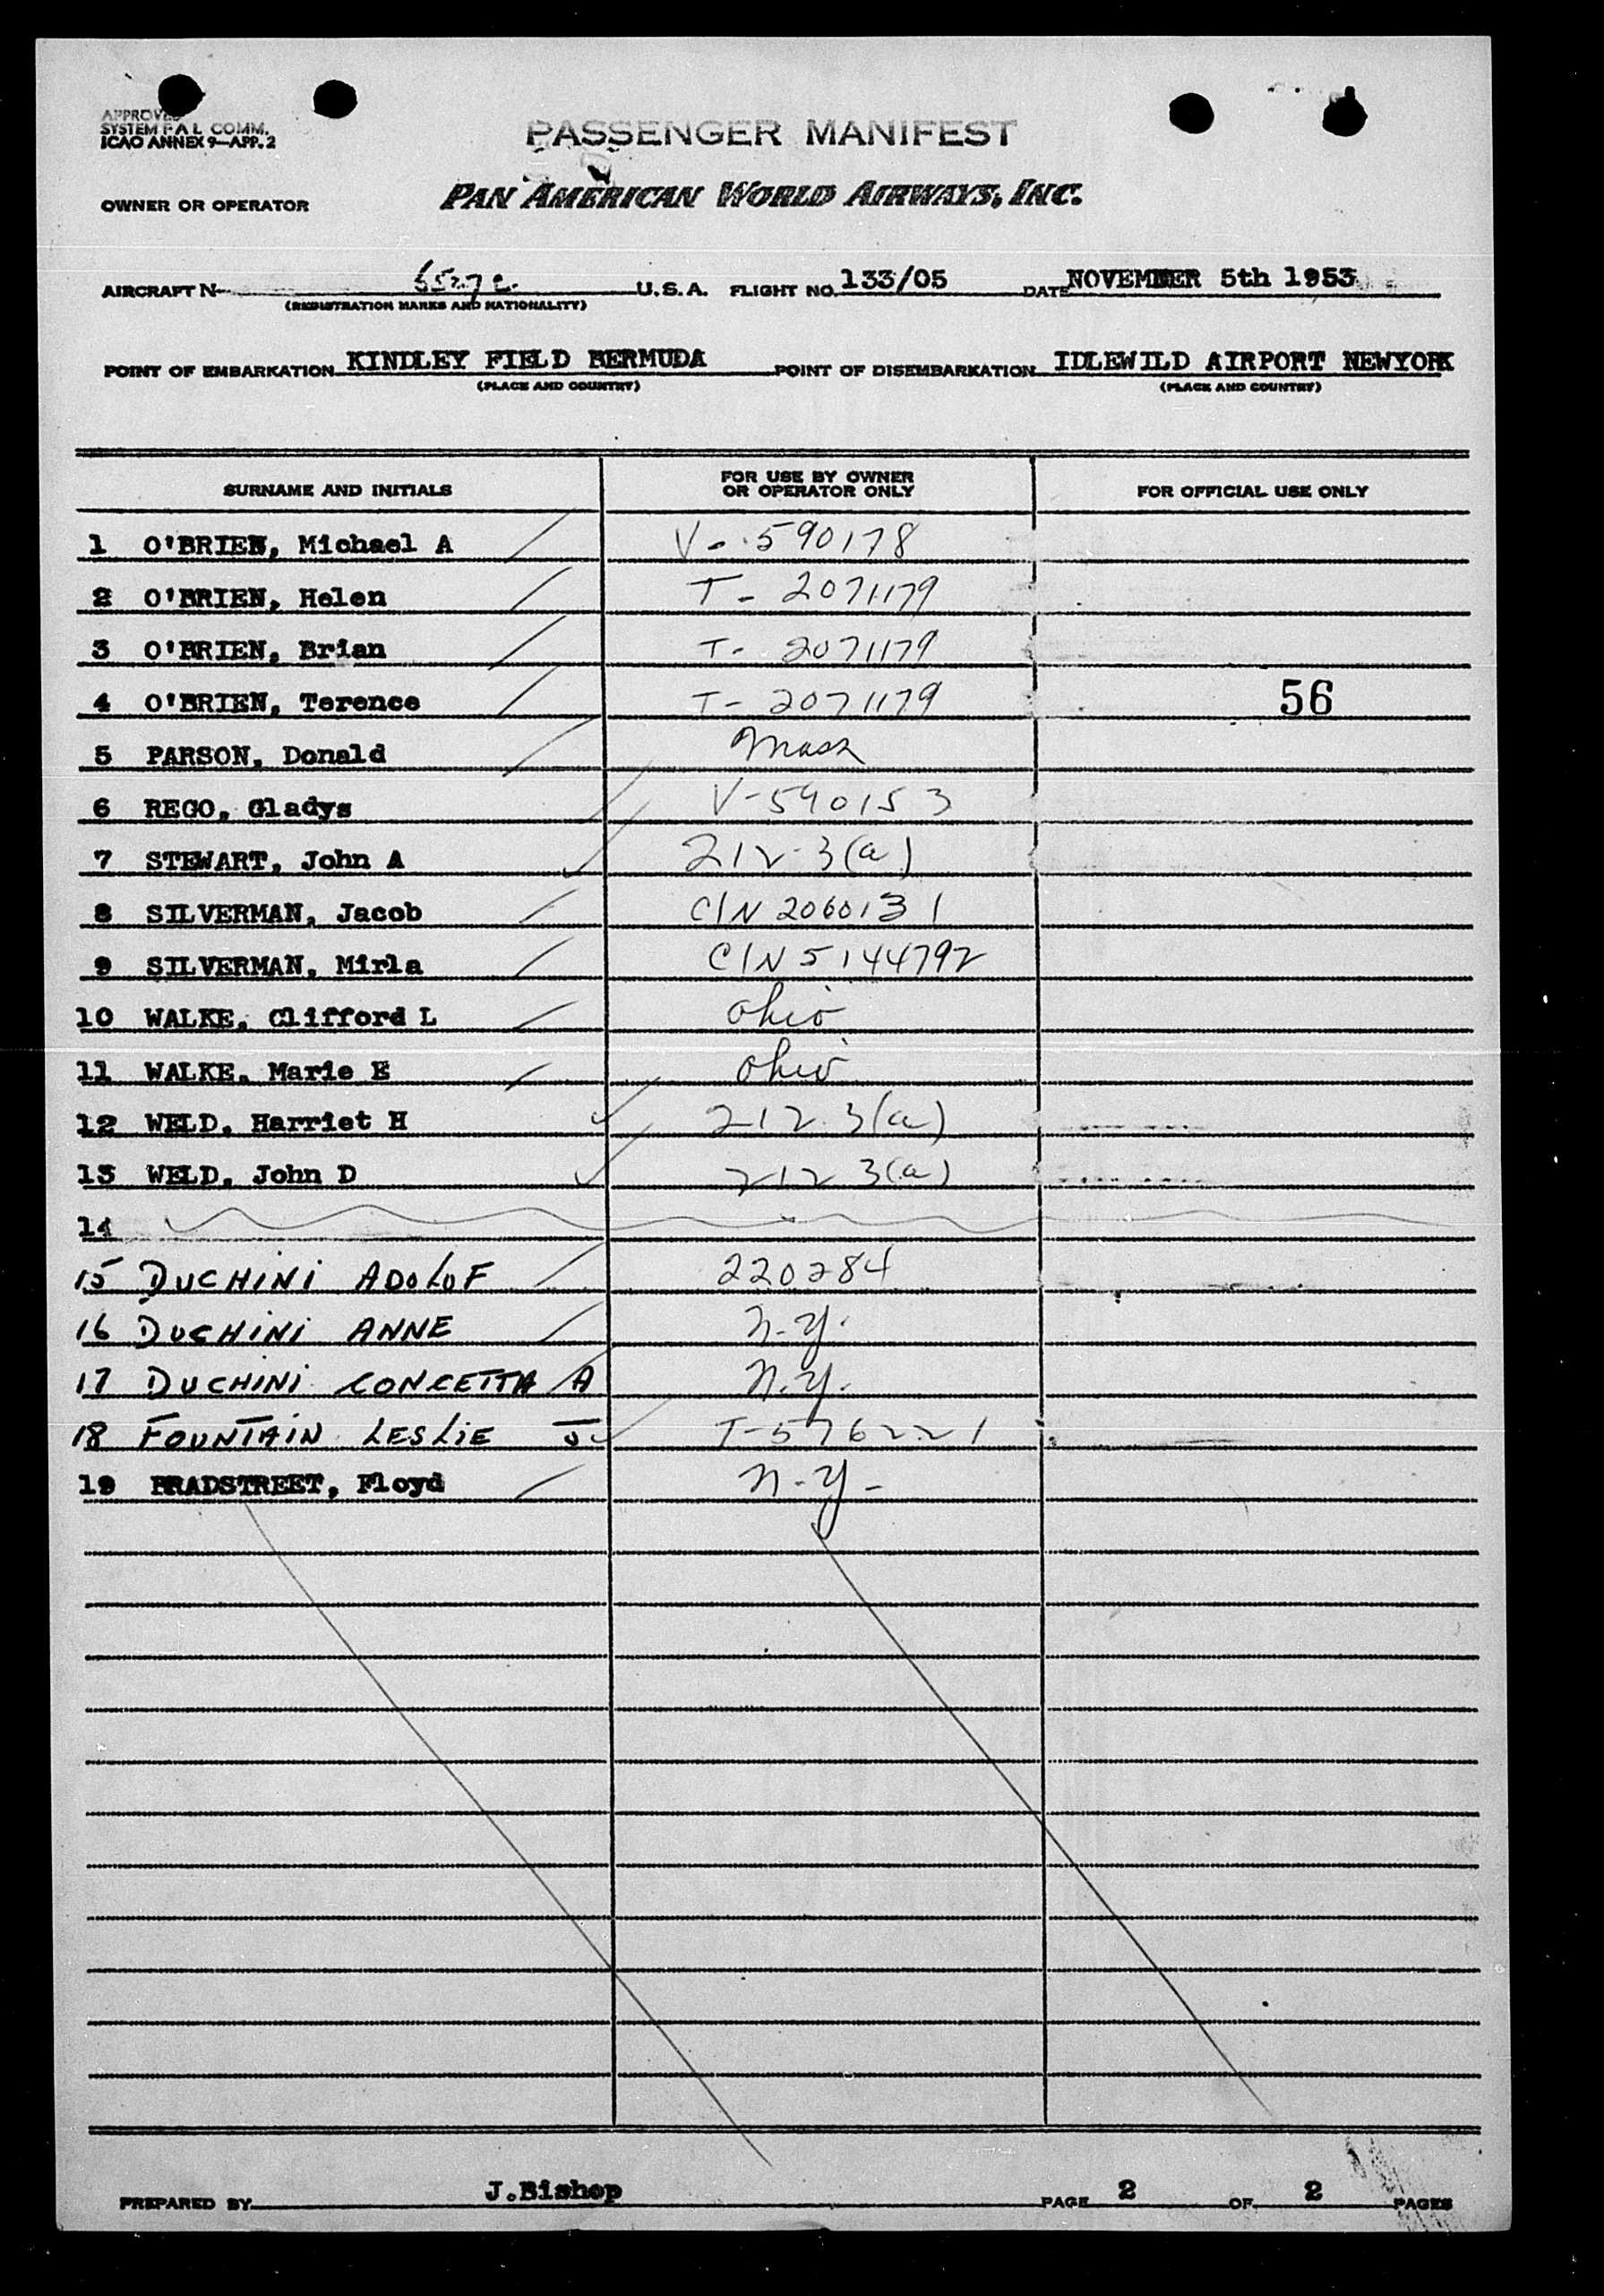 APPROVED
SYSTEM F A L COMM.
ICAO ANNEX 9—APP. 2
PASSENGER MANIFEST
OWNER OR OPERATOR PAN AMERICAN WORLD AIRWAYS, INC.
AIRCRAFT N U.S.A. FLIGHT NO. 133/05 DATE NOVEMBER 5th 1953
(REGISTRATION MARKS AND NATIONALITY)
POINT OF EMBARKATION KINDLEY FIELD BERMUDA POINT OF DISEMBARKATION IDLEWILD AIRPORT NEWYORK
(PLACE AND COUNTRY) (PLACE AND COUNTRY)
SURNAME AND INITIALS FOR USE BY OWNER OR OPERATOR ONLY FOR OFFICIAL USE ONLY
1 O'BRIEN, Michael A V-590178
2 O'BRIEN, Helen T-2071179
3 O'BRIEN, Brian T-2071179
4 O'BRIEN, Terence T-2071179 56
5 PARSON, Donald Mass
6 REGO, Gladys V-590153
7 STEWART, John A 212-3(a)
8 SILVERMAN, Jacob C/N 2060131
9 SILVERMAN, Mirla C/N 5144792
10 WALKE, Clifford L Ohio
11 WALKE, Marie E Ohio
12 WELD, Harriet H 212 3(a)
13 WELD, John D 212 3(a)
14
15 DUCHINI ADOLOF 220284
16 DUCHINI ANNE N.Y.
17 DUCHINI CONCETTA A N.Y.
18 FOUNTAIN LESLIE J T-576221
19 BRADSTREET, Floyd N.Y-
PREPARED BY J.Bishop PAGE 2 OF 2 PAGES